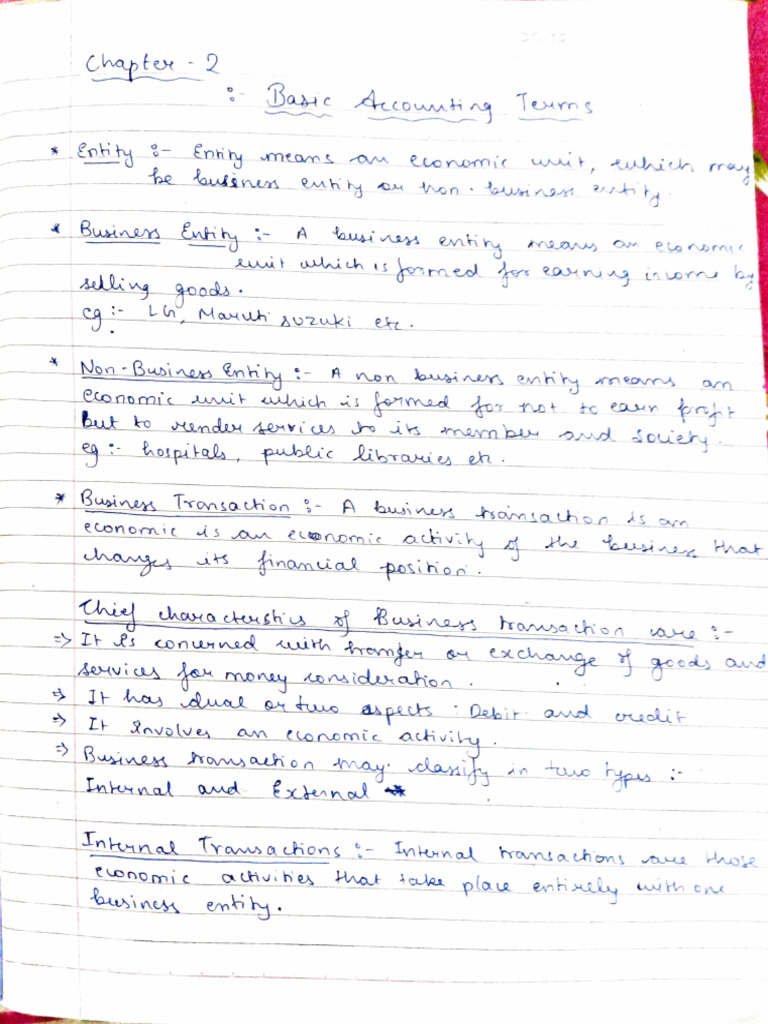 Chapter - 2
:- Basic Accounting Terms
* Entity :- Entity means an economic unit, which may
be business entity or non-business entity.
* Business Entity :- A business entity means an economic
unit which is formed for earning income by
selling goods.
eg :- LG, Maruti suzuki etc.
* Non-Business Entity :- A non business entity means an
economic unit which is formed for not to earn profit
but to render services to its member and society.
eg :- hospitals, public libraries etc.
* Business Transaction :- A business transaction is an
economic is an economic activity of the business that
changes its financial position.
Chief characterstics of Business transaction are :-
⇒ It is concerned with transfer or exchange of goods and
services for money consideration.
⇒ It has dual or two aspects : Debit and credit
⇒ It involves an economic activity.
⇒ Business transaction may classify in two types :-
Internal and External
Internal Transactions :- Internal transactions are those
economic activities that take place entirely with one
business entity.